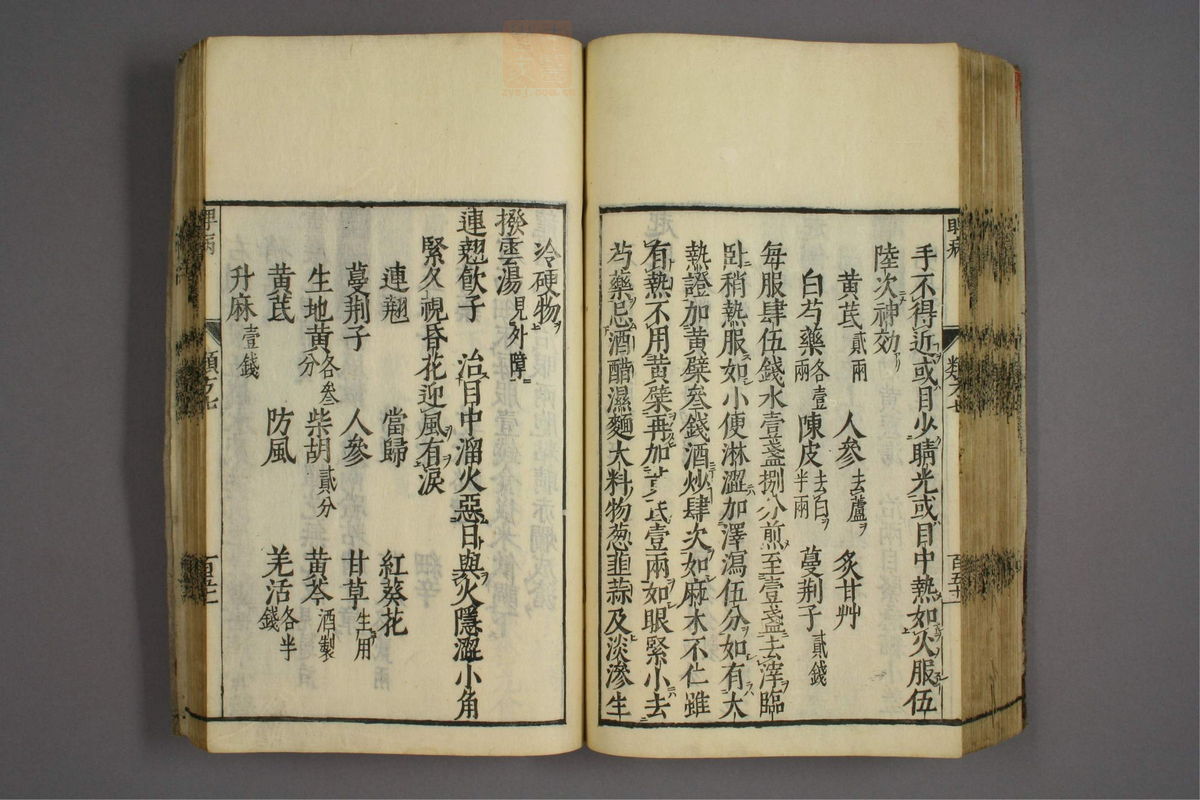 手不得近或目少睛光或目中熱如火服伍
陸次神効
黃芪貳兩 人參去蘆 炙甘艸
白芍藥各壹兩 陳皮去白半兩 蔓荆子貳錢
每服肆伍錢水壹盞捌分煎至壹盞去滓臨
臥稍熱服如小便淋澀加澤瀉伍分如有大
熱證加黃檗叁錢酒炒肆次如麻木不仁雖
有熱不用黃檗再加芪壹兩如眼緊小去
芍藥忌酒醋濕麵大料物葱韮蒜及淡滲生
冷硬物
撥雲湯見外障
連翹飮子 治目中溜火惡日與火隱澀小角
緊久視昏花迎風有淚
連翹 當歸 紅葵花
蔓荆子 人參 甘草生用
生地黃各叁分 柴胡貳分 黃芩酒製
黃芪 防風 羌活各半錢
升麻壹錢